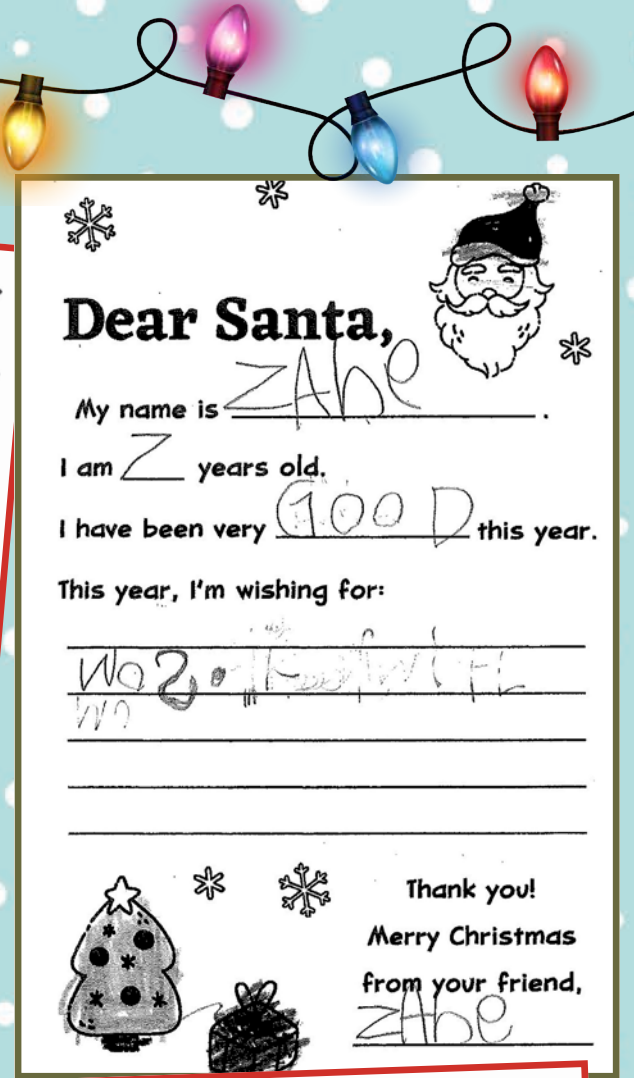 Dear Santa,
My name is ZAbe.
I am Z years old.
I have been very GOOD this year.
This year, I'm wishing for:
Thank you!
Merry Christmas
from your friend,
ZAbe